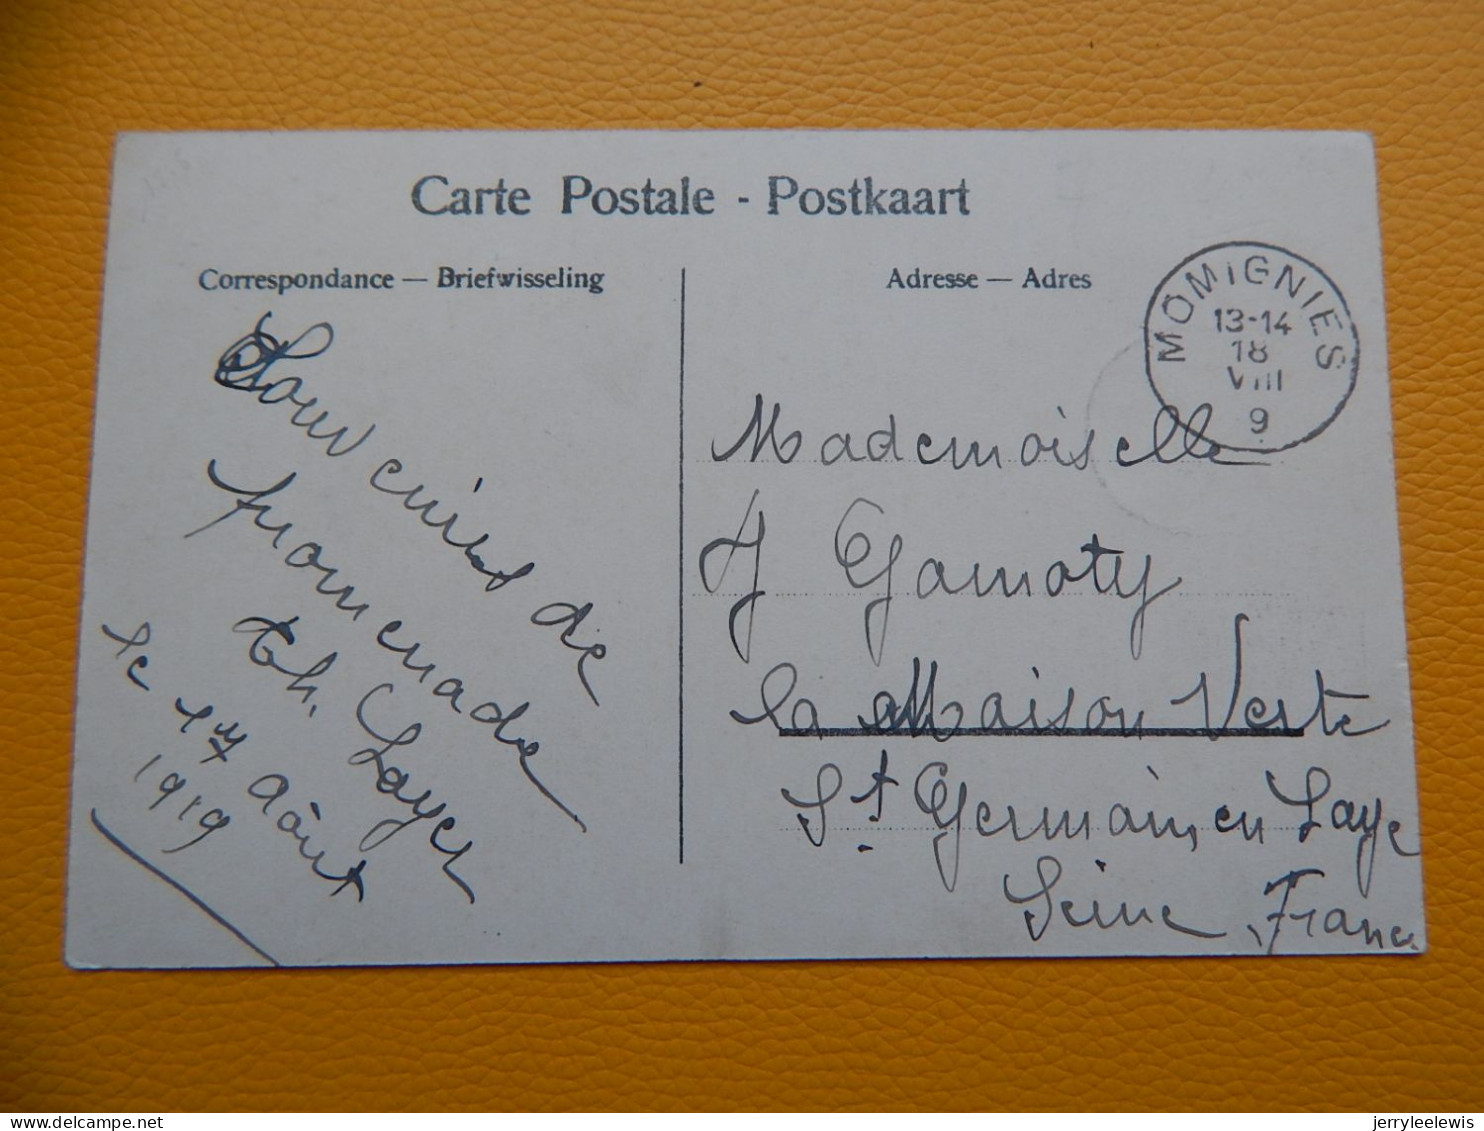 Carte Postale - Postkaart
Correspondance — Briefwisseling
Adresse — Adres
MOMIGNIES
13-14
18
VIII
9
Souvenirs de
promenade
th. Loyer
le 1er Août
1919
Mademoiselle
J
la Maison Verte
St Germain en Laye
Seine France
www.delcampe.net
jerryleelewis